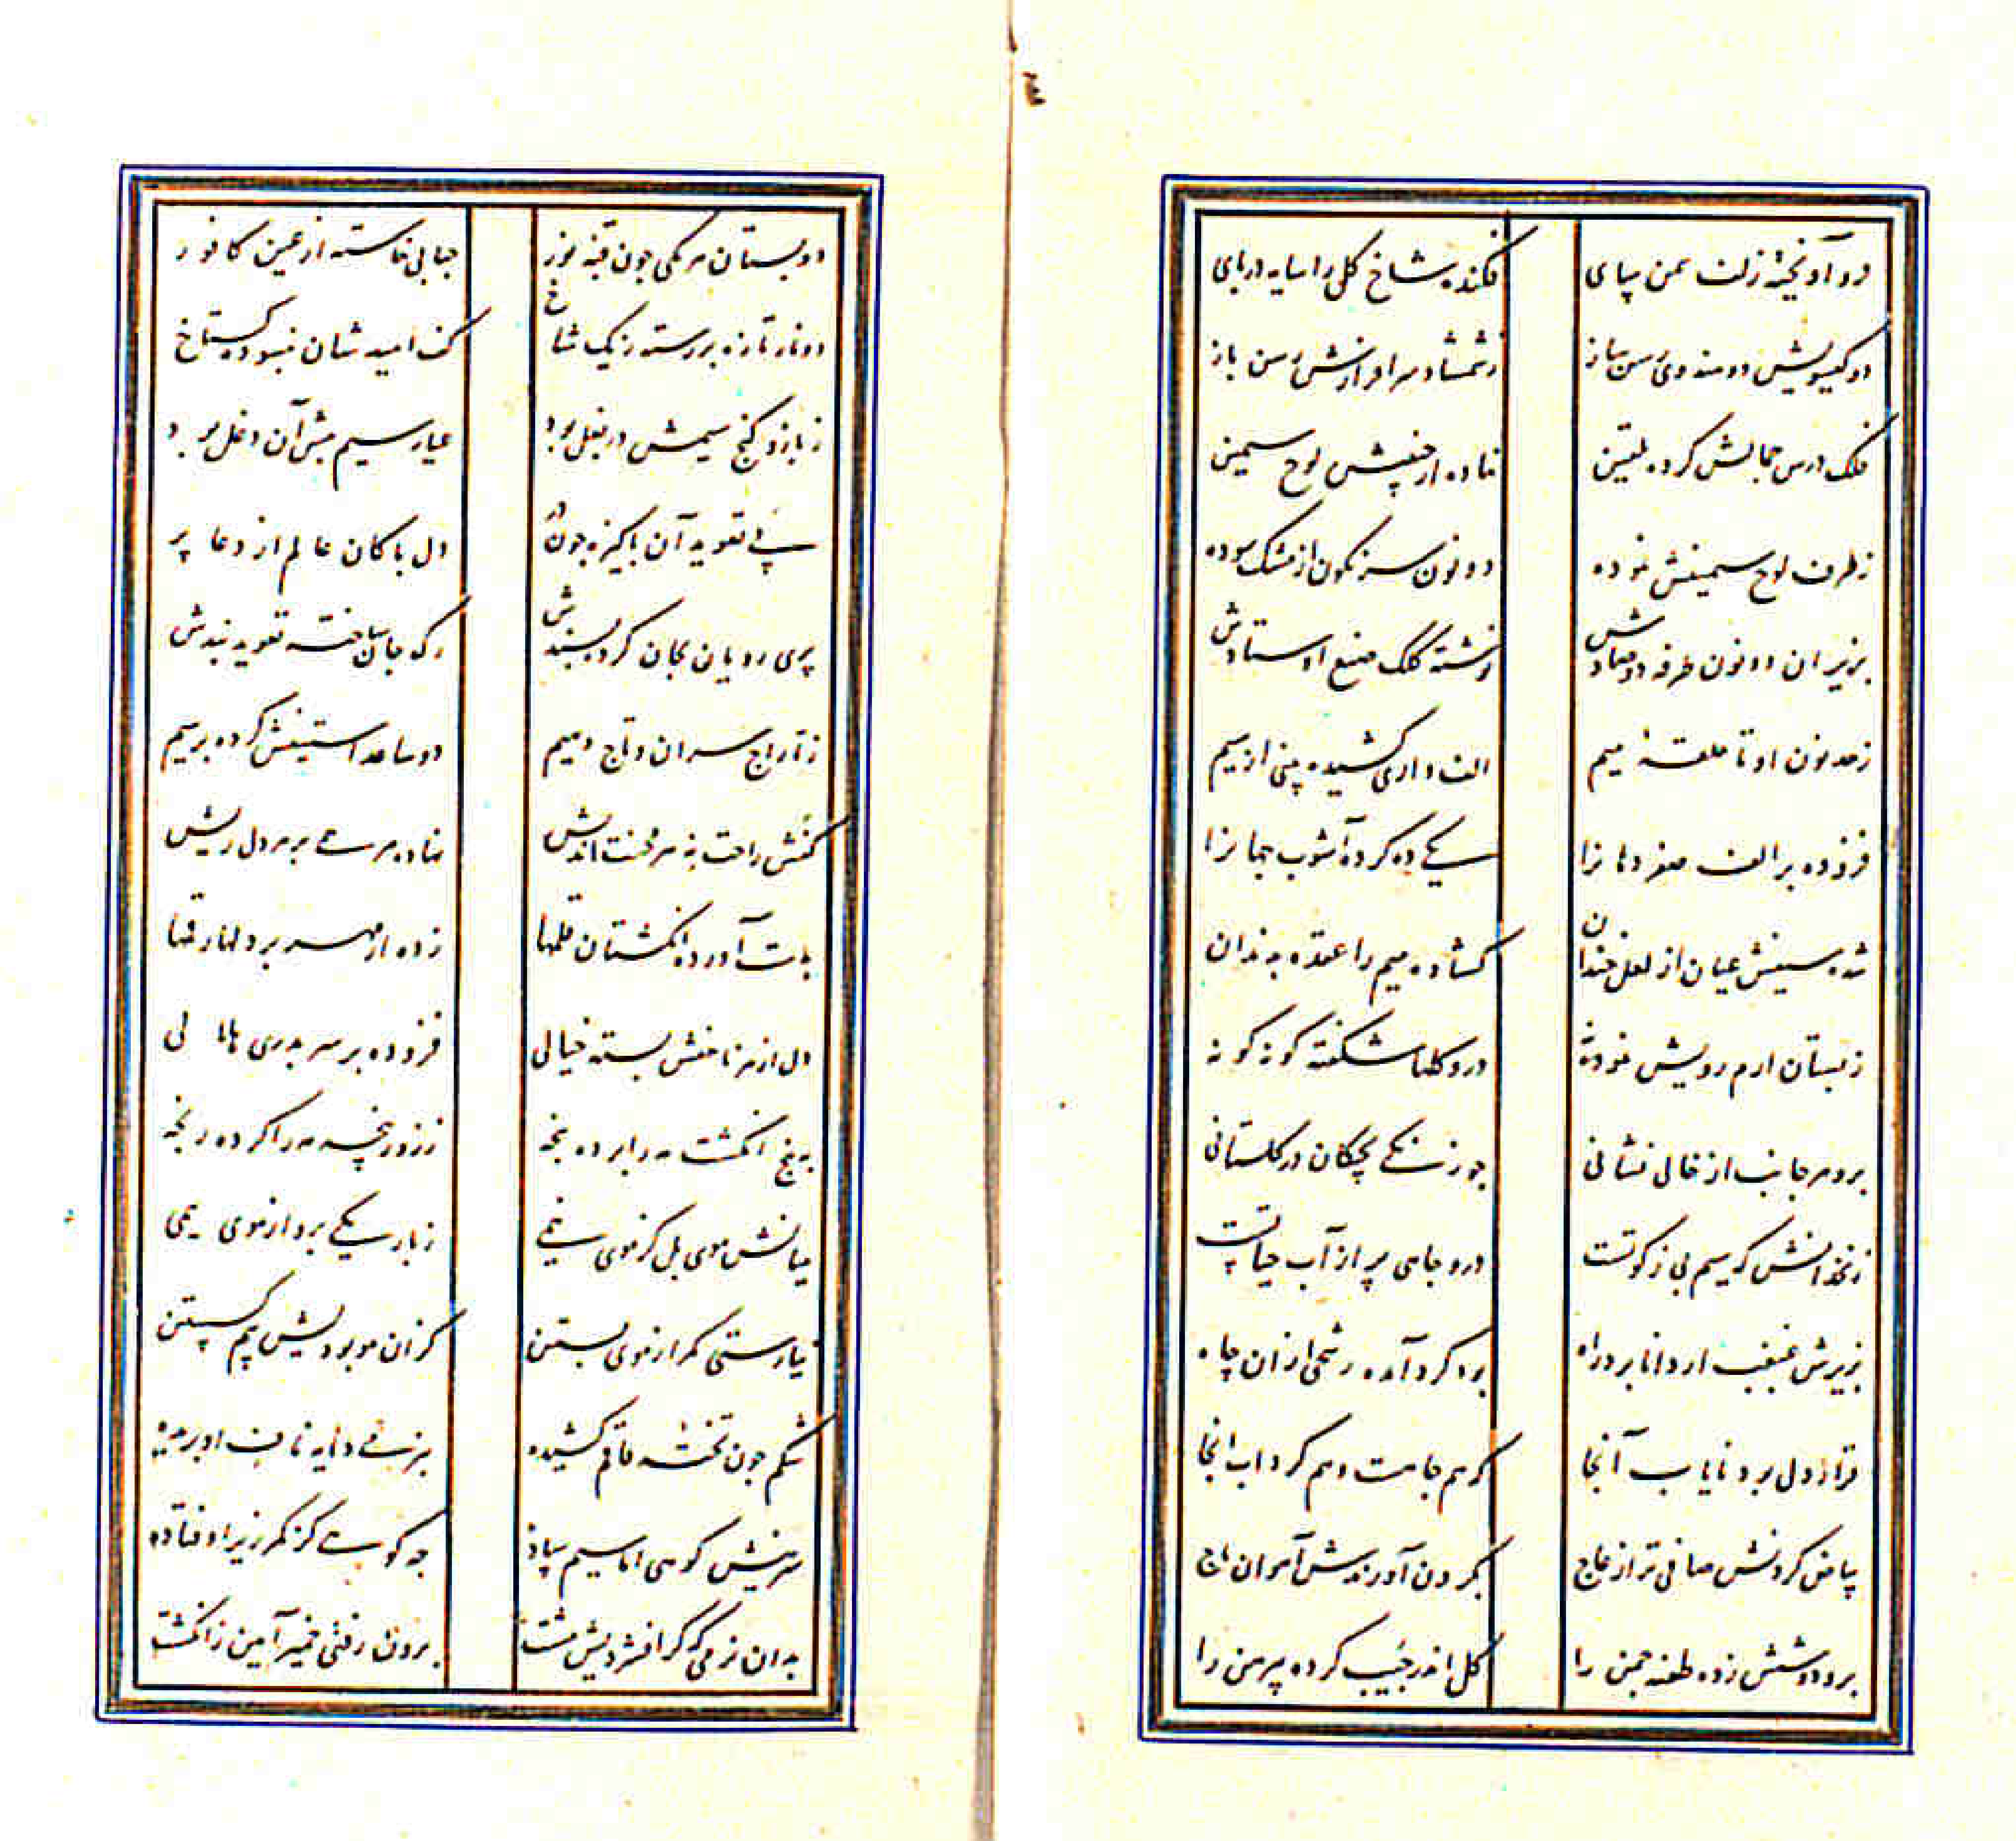 فرو آویخته زلف سمن سای
فکنده شاخ گل را سایه در پای
دو گیسویش دو هندوی رسن ساز
ز شمشاد سرافرازش رسن باز
فلک درس جمالش کرده تلقین
نهاده از جبینش لوح سیمین
ز طرف لوح سیمینش نموده
دو نون سرنگون از مشک سوده
بزیر ان دو نون طرفه دو صادش
نوشته کلک صنع اوستادش
ز حد نون او تا حلقه میم
الف واری کشیده بینی از سیم
فزوده بر الف صفر دهانرا
یکی ده کرده آشوب جهانرا
شده سینش عیان از لعل خندان
کشاده میم را عقده بدندان
ز بستان ارم رویش نمونه
درو کلها شکفته کونه کونه
برو هر جانب از خالی نشانی
چو زنکی بچکان در کلستانی
زنخدانش که سیم بی زکوتست
درو چاهی پر از آب حیاتست
بزیرش غبغب ار دانا برد راه
بود کرد آمده رشحی از ان چاه
قرار دل بود نایاب آنجا
که هم چاهست و هم کرداب انجا
بیاض کردنش صافی تر از عاج
بکردن آورندش آهوان باج
برو دوشش زده طعنه سمن را
کل اندر جیب کرده پیرهن را
دو پستان هر یکی چون قبه نور
حبابی خاسته از عین کافور
دو نار تازه بر رسته ز یک شاخ
کف امیدشان نبسوده کستاخ
ز بازو کنج سیمش در بغل بود
عیار سیم پیش آن دغل بود
پی تعوید آن پاکیزه چون در
دل پاکان عالم از دعا پر
پری رویان بجان کرده پسندش
رک جان ساخته تعوید بندش
ز تاراج سران تاج و دیهیم
دو ساعد استینش کرده پر سیم
کفش راحت ده هر محنت اندیش
نهاده مرهمی بهر دل ریش
بدست آورده ز انکشتان قلمها
زده از مهر بر دلها رقمها
دل از هر ناخنش بسته خیالی
فزوده بر سر بدری هلالی
به پنج انکشت مه را برده پنجه
ز زور پنجه مه را کرده رنجه
میانش موی بل کز موی نیمی
ز باریکی برو از موی بیمی
نیارستی کمر از موی بستن
کز ان مو بودیش بیم کسستن
شکم چون تخته قاقم کشیده
بنرمی دایه ناف او بریده
سرینش کوهی اما سیم ساده
چه کوهی کز کمر زیر اوفتاده
بدان نرمی که کر افشردیش مشت
برون رفتی خمیر آیین ز انکشت